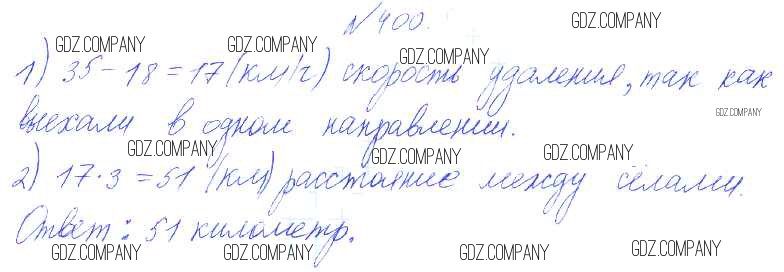 №400.
1) 35-18=17 (км/ч) скорость удаления, так как
выехали в одном направлении.
2) 17·3=51 (км) расстояние между сёлами.
Ответ: 51 километр.
GDZ.COMPANY
GDZ.COMPANY
GDZ.COMPANY
GDZ.COMPANY
GDZ.COMPANY
GDZ.COMPANY
GDZ.COMPANY
GDZ.COMPANY
GDZ.COMPANY
GDZ.COMPANY
GDZ.COMPANY
GDZ.COMPANY